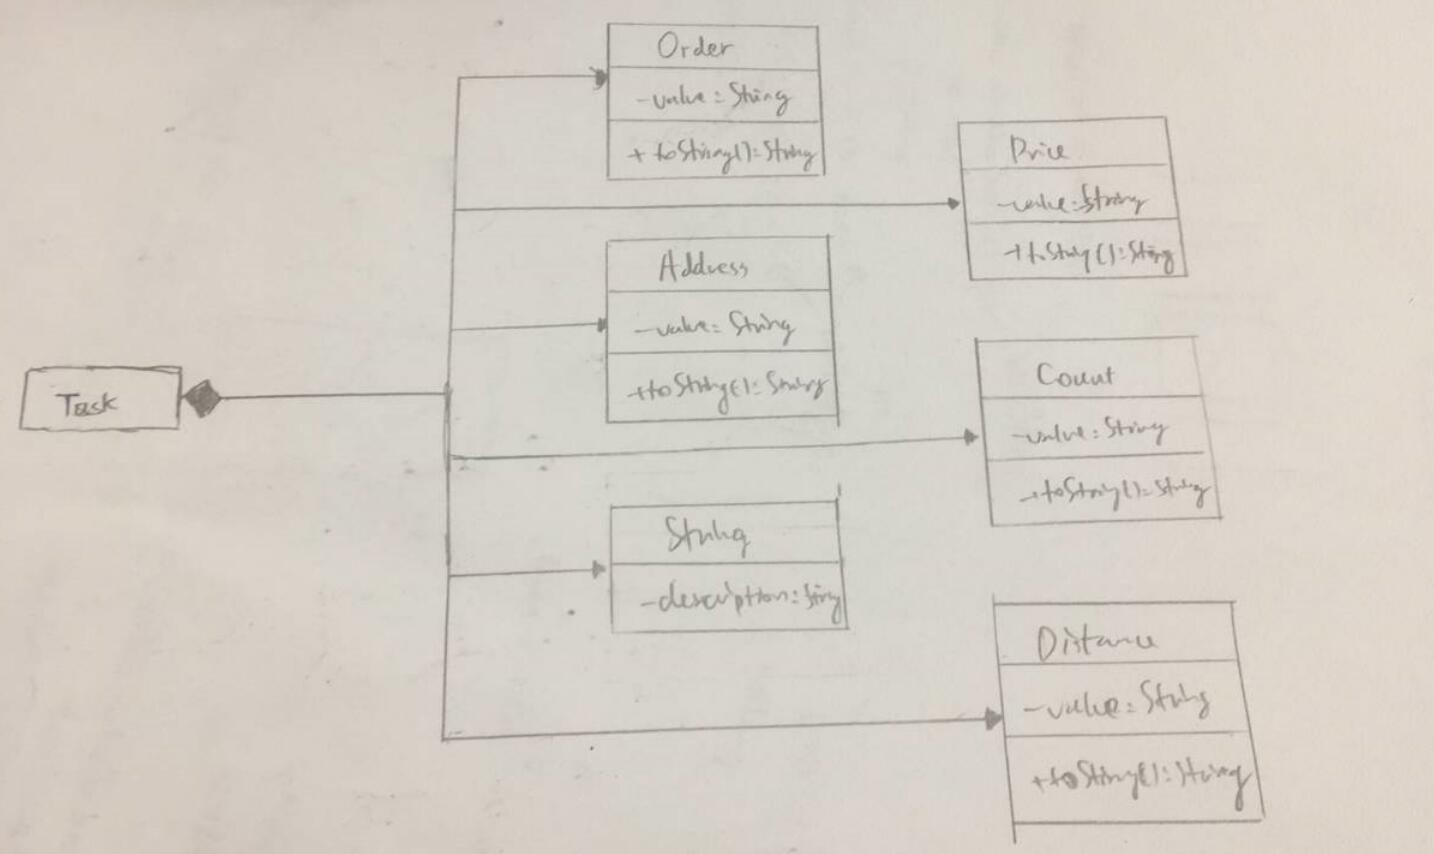 Order
-value: String
+ toString(): String
Price
-value: String
+toString(): String
Address
-value: String
+toString(): String
Task
Count
-value: String
+toString(): String
String
-description: String
Distance
-value: String
+toString(): String